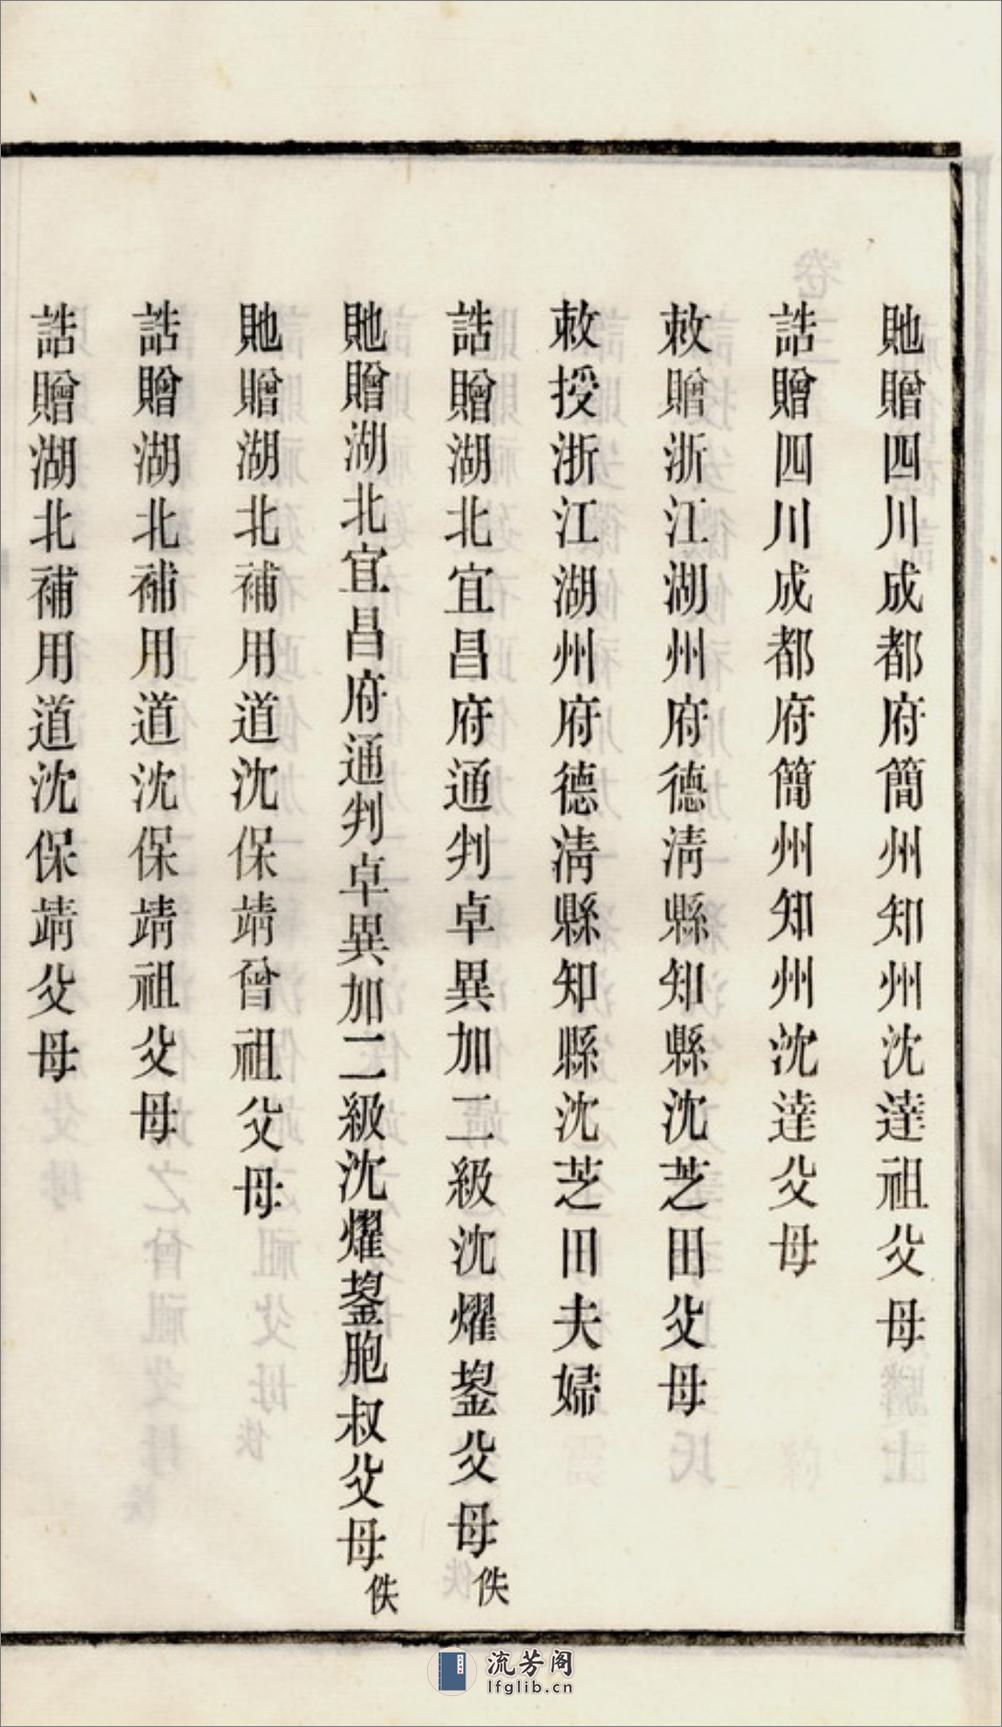 貤贈四川成都府簡州知州沈達祖父母
誥贈四川成都府簡州知州沈達父母
敕贈浙江湖州府德淸縣知縣沈芝田父母
敕授浙江湖州府德淸縣知縣沈芝田夫婦
誥贈湖北宜昌府通判卓異加二級沈燿鋆父母佚
貤贈湖北宜昌府通判卓異加二級沈燿鋆胞叔父母佚
貤贈湖北補用道沈保靖曾祖父母
誥贈湖北補用道沈保靖祖父母
誥贈湖北補用道沈保靖父母
流芳阁
lfglib.cn